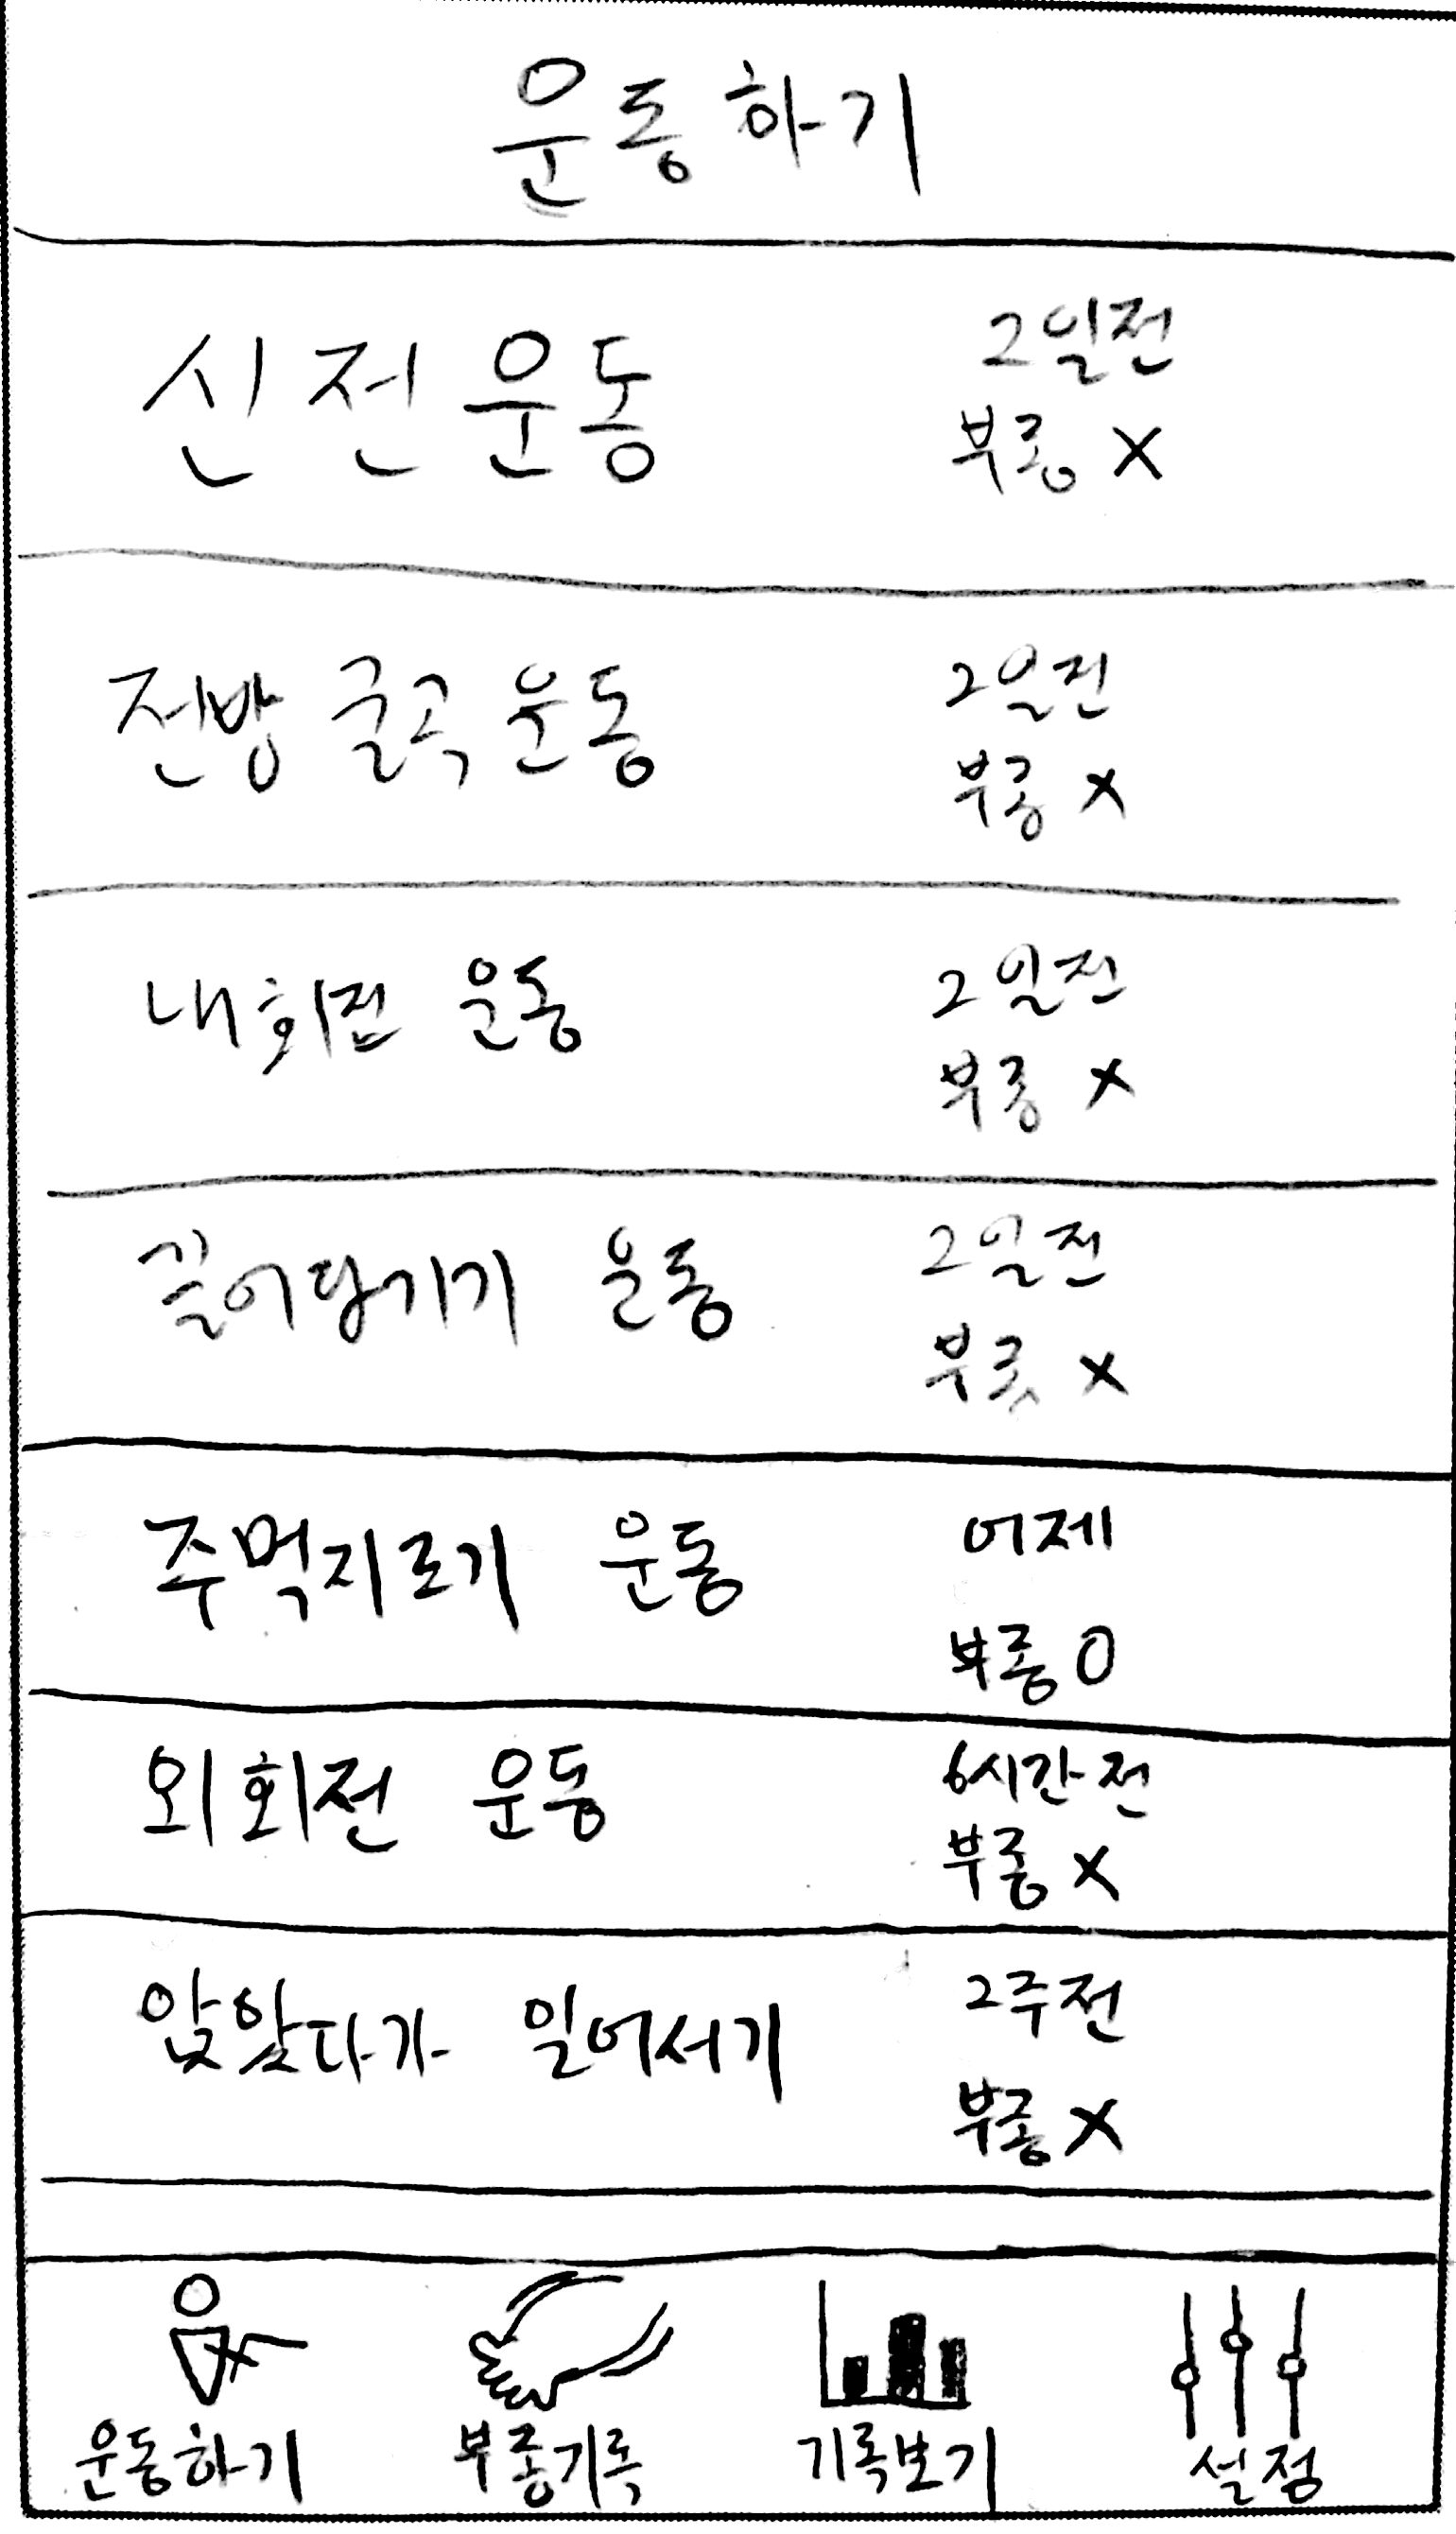 운동하기
신전운동
2일전
부종 X
전방 굴곡 운동
2일전
부종 X
내회전 운동
2일전
부종 X
끌어당기기 운동
2일전
부종 X
주먹지르기 운동
어제
부종 O
외회전 운동
6시간전
부종 X
앉았다가 일어서기
2주전
부종 X
운동하기 부종기록 기록보기 설정